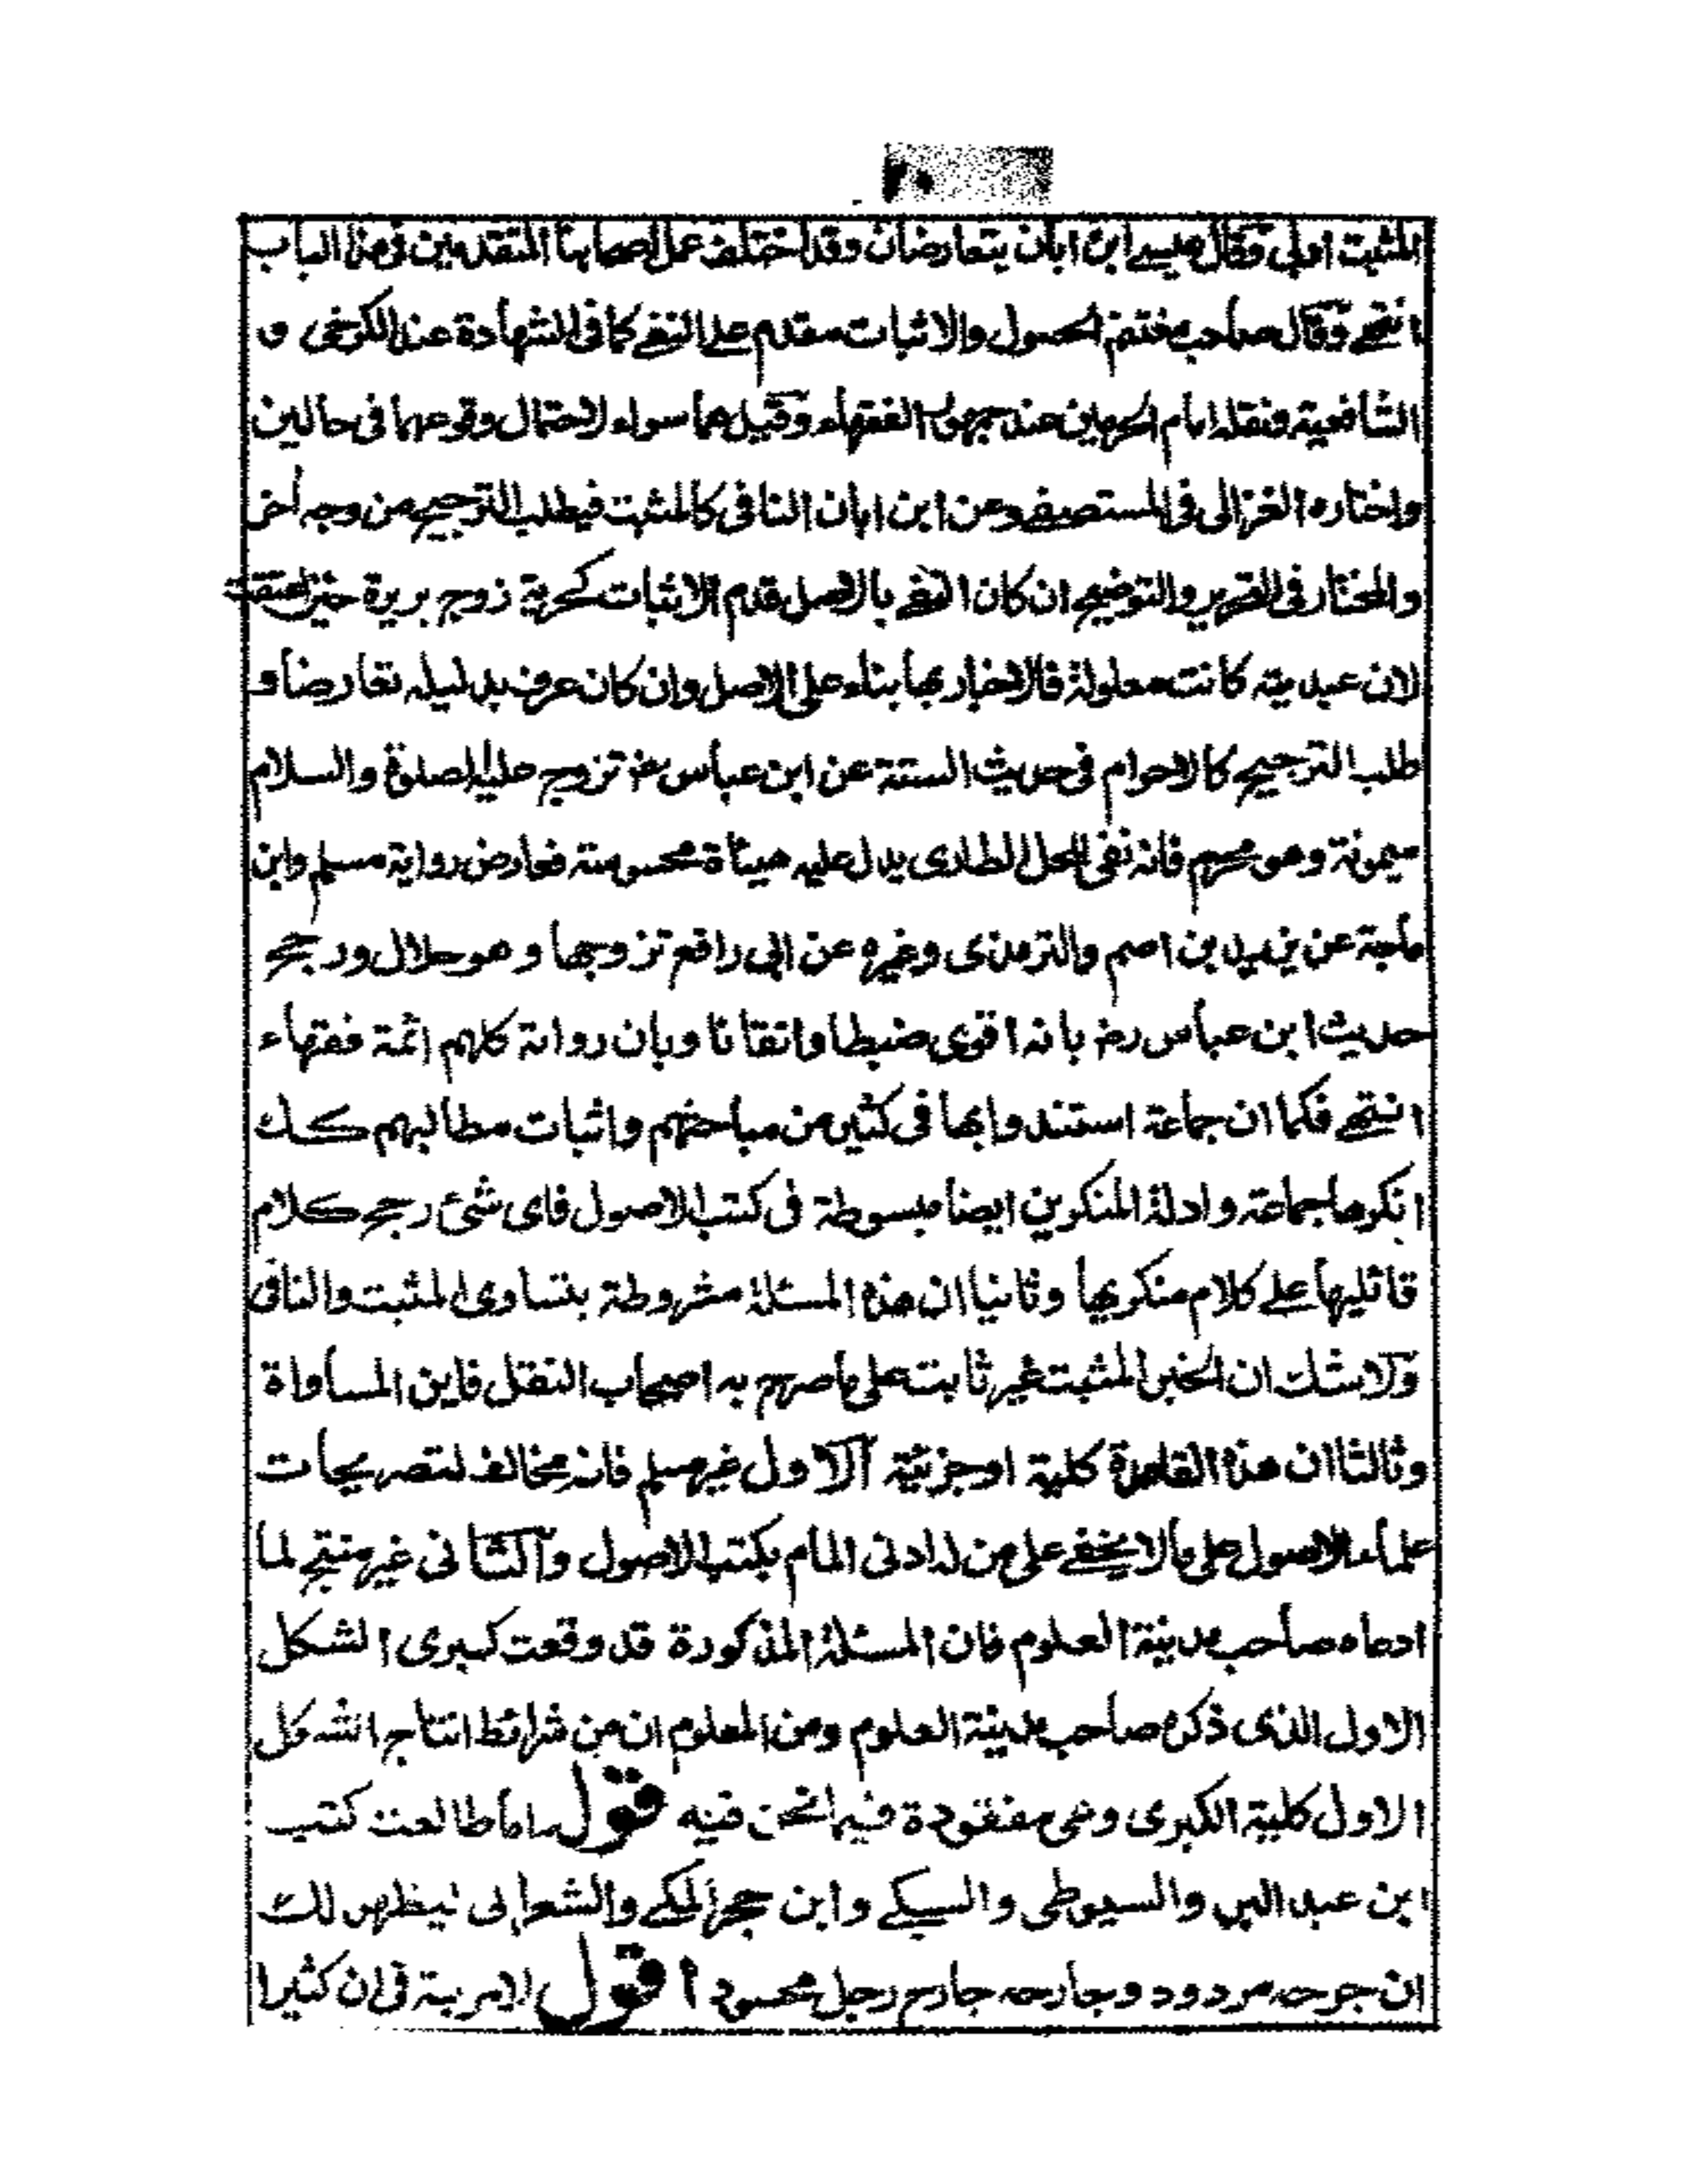 ٢٠
المثبت اولى وقال عيسے ابن ابان يتعارضان وقد اختلف عمل اصحابنا المتقدمين فى هذا الباب
انتهے وقال صاحب مغتنم الحصول والاثبات مقدم علے النفے كما فى الشهادة عند الكرخى و
الشافعية ونقله امام الحرمين عند جمهور الفقهاء وقيل هما سواء لاحتمال وقوعهما فى حالين
واختاره الغزالى فى المستصفے وعن ابن ابان النافى كالمثبت فيطلب الترجيح من وجه أخر
والمختار فى التحرير والتوضيح ان كان النفے بالاصل قدم الاثبات كحرية زوج بريرة حين اعتقت
لان عبديته كانت معلولة فالاخبار بها بناء على الاصل وان كان عرف بدليله تعارضا و
طلب الترجيح كالاحرام فى حديث الستة عن ابن عباس رض تزوج عليه الصلوة والسلام
ميمونة وهو محرم فانه نفى للحل الطارى يدل عليه هيئاة محسوسة فعارض رواية مسلم وابن
ماجة عن يزيد بن اصم والترمذى وغيره عن ابى رافع تزوجها وهو حلال ورجح
حديث ابن عباس رض بانه اقوى ضبطا واتقانا وبان رواته كلهم ائمة فقهاء
انتهے فكما ان جماعة استندوا بها فى كثير من مباحثهم واثبات مطالبهم كك
انكرها جماعة وادلة المنكرين ايضا مبسوطة فى كتب الاصول فاى شئ رجح كلام
قائليها علے كلام منكريها وثانيا ان هذه المسئلة مشروطة بتساوى المثبت والنافى
ولا شك ان الخبر المثبت غير ثابت على ما صرح به اصحاب النقل فاين المساواة
وثالثا ان هذه القاعدة كلية او جزئية الاول غير مسلم فانه مخالف لتصريحات
علماء الاصول على ما لا يخفے على من له ادنى المام بكتب الاصول والثانى غير منتج لما
ادعاه صاحب مدينة العلوم فان المسئلة المذكورة قد وقعت كبرى الشكل
الاول الذى ذكره صاحب مدينة العلوم ومن المعلوم ان من شرائط انتاج الشكل
الاول كلية الكبرى وهى مفقودة فيما نحن فيه قوله اما طالعت كتب
ابن عبد البر والسيوطى والسبكے وابن حجر المكے والشعرانى ليظهر لك
ان جرحه مردود وجارحه جارح رجل محسود أقول لا مرية فى ان كثيرا